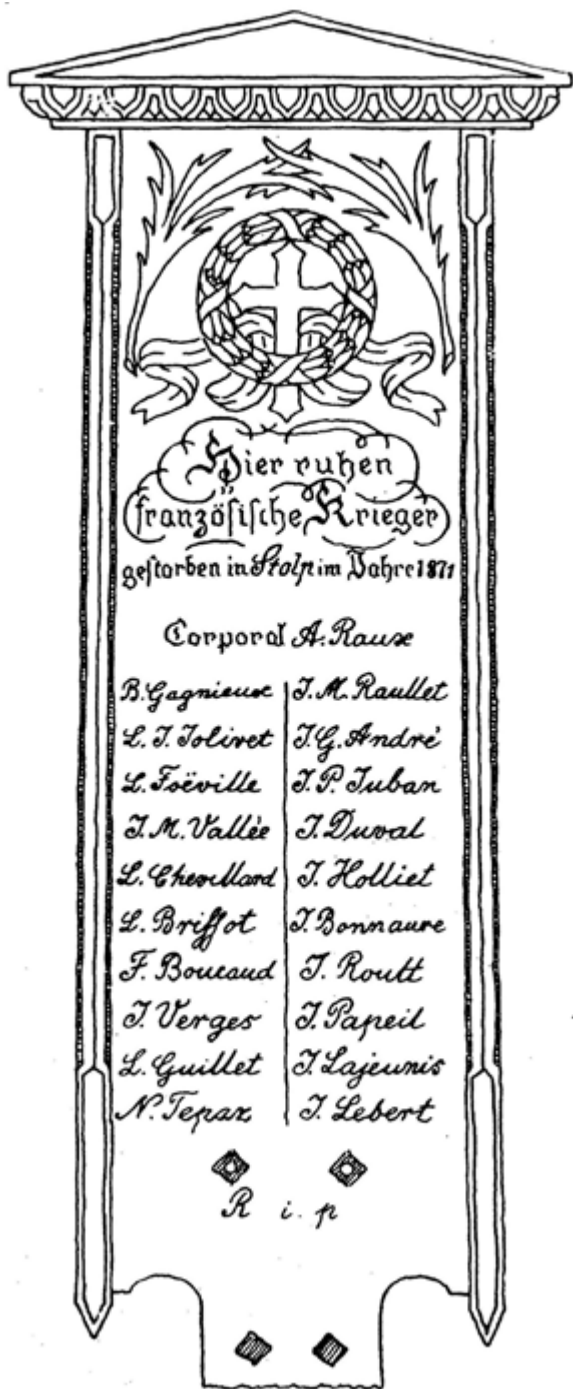 Hier ruhen
französische Krieger
gestorben in Stolp im Jahre 1871
Corporal A. Raux
B. Gagnieux
L. J. Jolivet
L. Foëville
J. M. Vallée
L. Chevillard
L. Briffot
F. Boucaud
J. Verges
L. Guillet
N. Tepax
J. M. Raullet
J. G. André
J. P. Juban
J. Duval
J. Holliet
J. Bonnaure
J. Routt
J. Papeil
J. Lajeunis
J. Lebert
R i. p